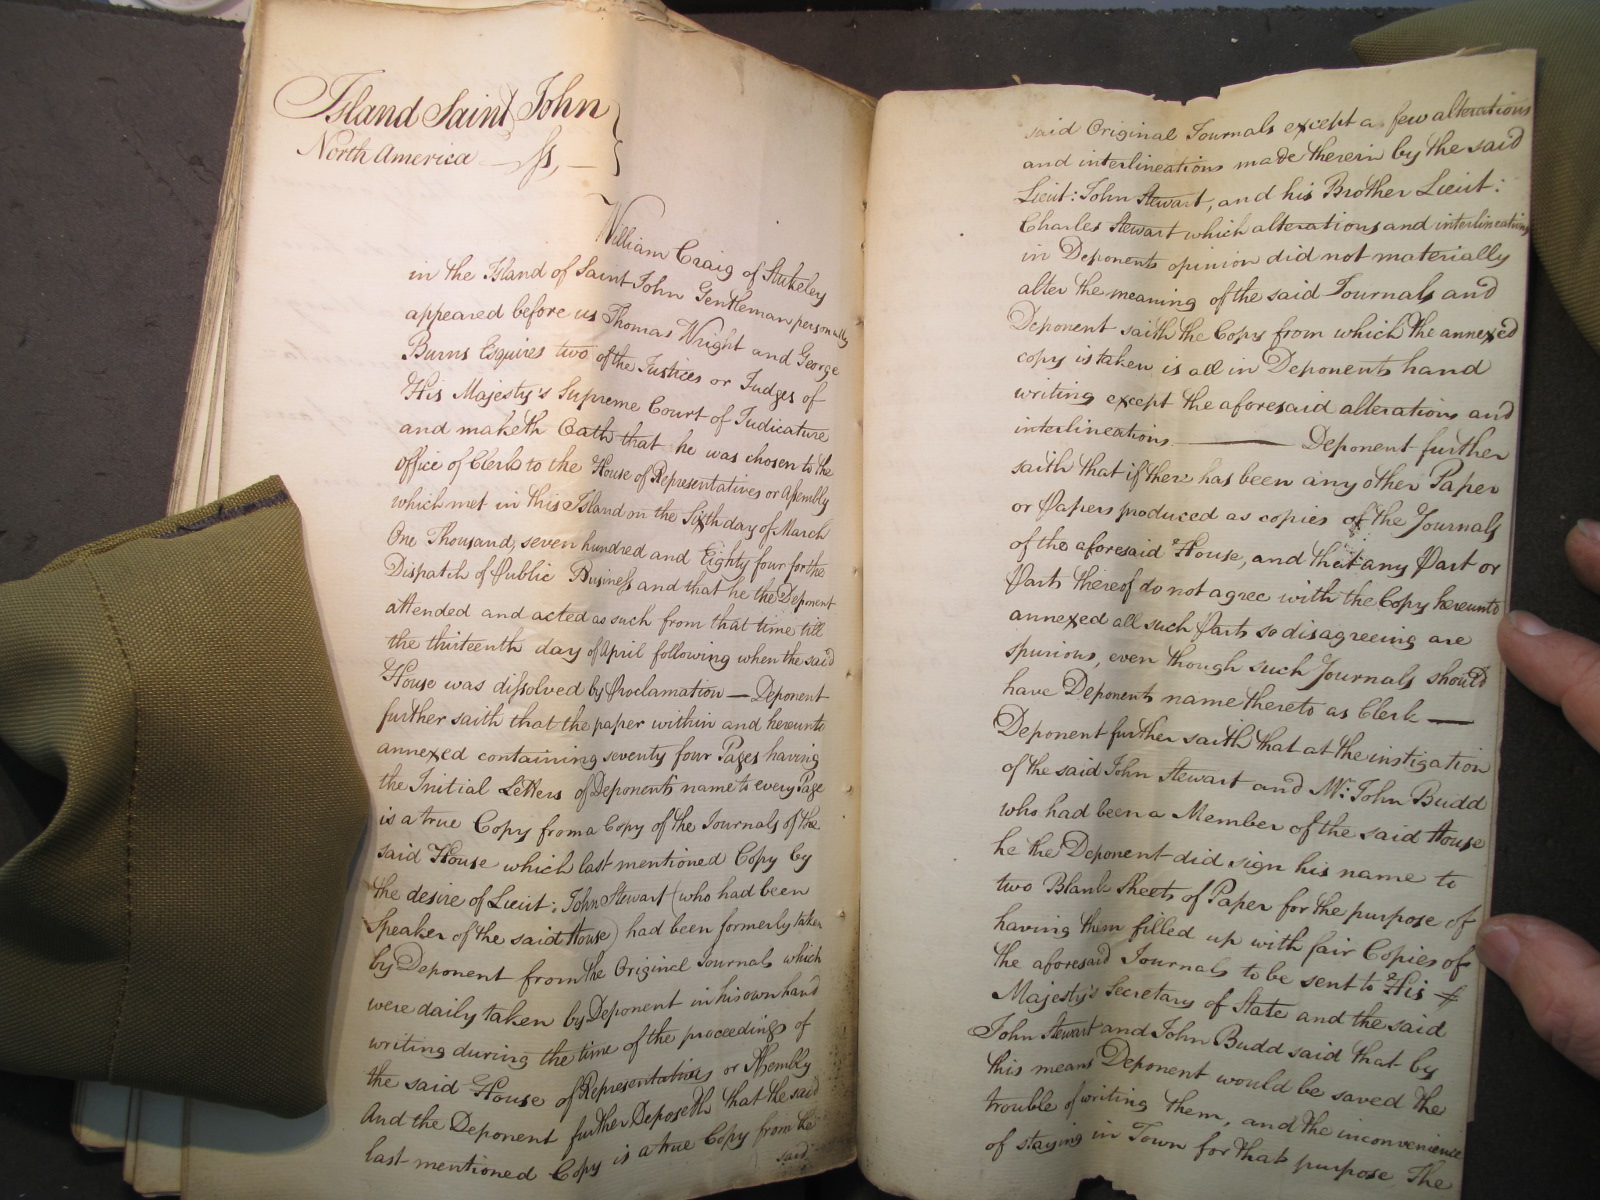 Island Saint John
North America — Ss, —
William Craig of Stukeley
in the Island of Saint John Gentleman personally
appeared before us Thomas Wright and George
Burns Esquires two of the Justices or Judges of
His Majesty's Supreme Court of Judicature
and maketh Oath that he was chosen to the
office of Clerk to the House of Representatives or Assembly
which met in this Island on the Sixth day of March
One Thousand, seven hundred and Eighty four for the
Dispatch of Public Business and that he the Deponent
attended and acted as such from that time till
the thirteenth day of April following when the said
House was dissolved by Proclamation — Deponent
further saith that the paper within and hereunto
annexed containing seventy four Pages having
the Initial Letters of Deponents name to every Page
is a true Copy from a Copy of the Journals of the
said House which last mentioned Copy by
the desire of Lieut: John Stewart (who had been
Speaker of the said House) had been formerly taken
by Deponent from the Original Journals which
were daily taken by Deponent in his own hand
writing during the time of the proceedings of
the said House of Representatives or Assembly
And the Deponent further Deposeth that the said
last mentioned Copy is a true Copy from the
said
said Original Journals except a few alterations
and interlineations made therein by the said
Lieut: John Stewart, and his Brother Lieut:
Charles Stewart which alterations and interlineations
in Deponents opinion did not materially
alter the meaning of the said Journals and
Deponent saith the Copy from which the annexed
copy is taken is all in Deponents hand
writing except the aforesaid alterations and
interlineations. — Deponent further
saith that if there has been any other Paper
or Papers produced as copies of the Journals
of the aforesaid House, and that any Part or
Parts thereof do not agree with the Copy hereunto
annexed all such Parts so disagreeing are
spurious, even though such Journals should
have Deponents name thereto as Clerk —
Deponent further saith that at the instigation
of the said John Stewart and Mr: John Budd
who had been a Member of the said House
he the Deponent did sign his name to
two Blank Sheets of Paper for the purpose of
having them filled up with fair Copies of
the aforesaid Journals to be sent to His
Majesty's Secretary of State and the said
John Stewart and John Budd said that by
this means Deponent would be saved the
trouble of writing them, and the inconvenience
of staying in Town for that purpose. The